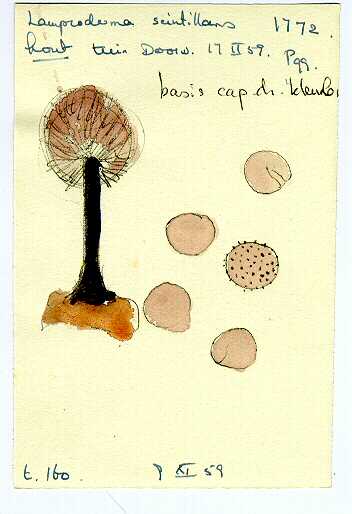 Lamproderma scintillans 1772.
hout tuin Doorw. 17 II 59. P99.
basis cap dr.
t. 160 P XI 59